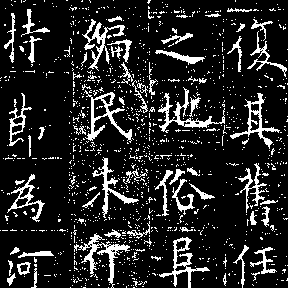 復其舊任
之地俗阜
編民未行
持節為河